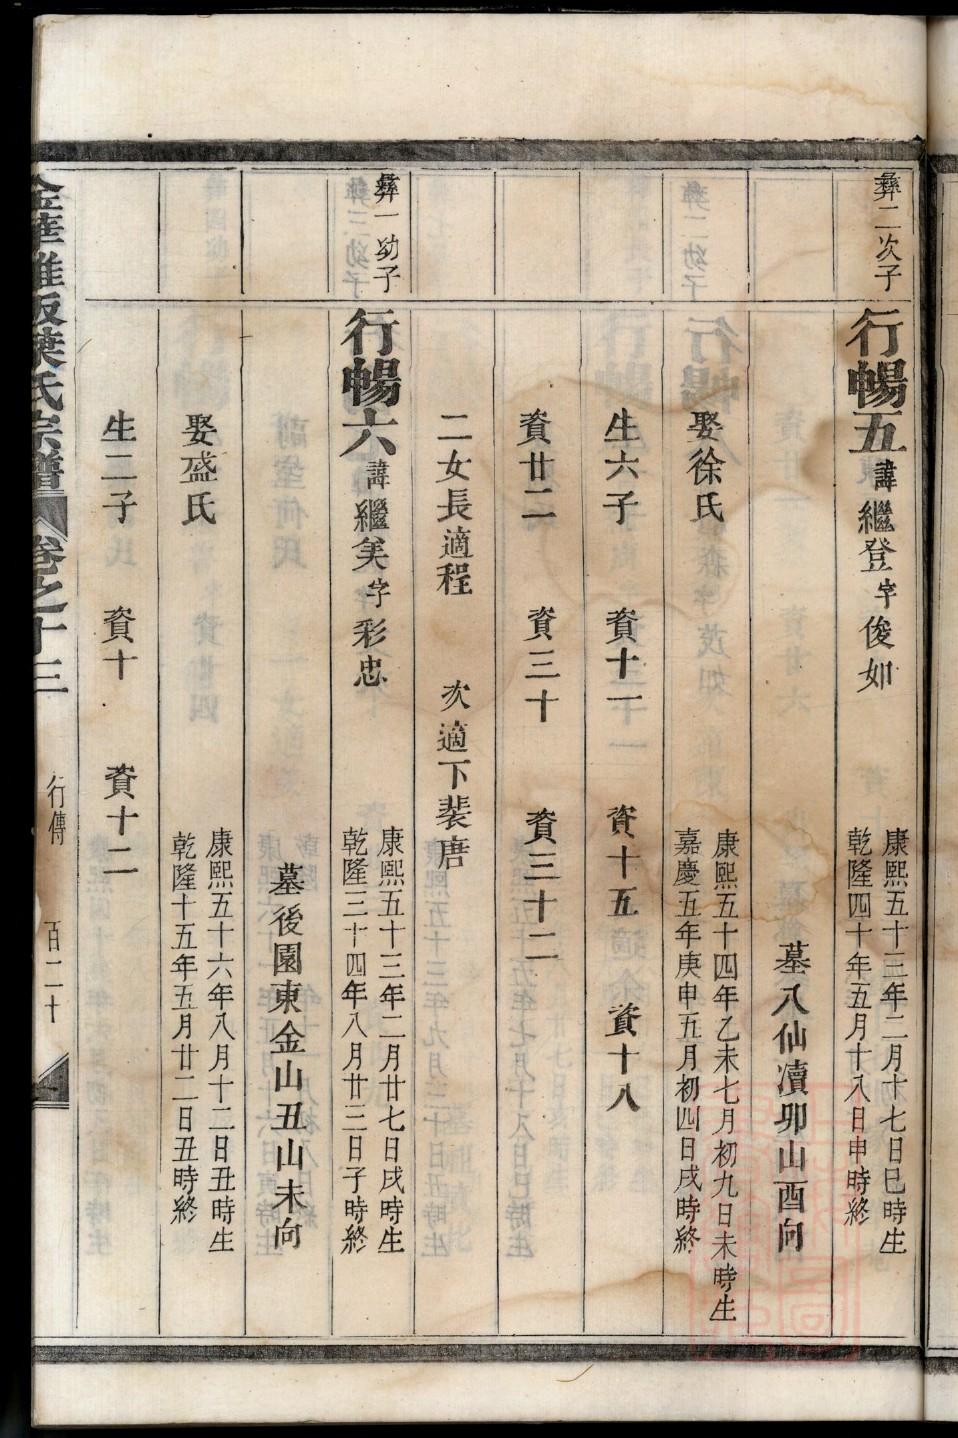 彝二次子
行暢五諱繼登字俊如
康熙五十三年二月十七日巳時生
乾隆四十年五月十八日申時終
墓八仙瀆卯山酉向
娶徐氏
康熙五十四年乙未七月初九日未時生
嘉慶五年庚申五月初四日戌時終
生六子 資十一 資十五 資十八
資廿二 資三十 資三十二
二女長適程 次適下裴唐
彝一幼子
行暢六諱繼美字彩忠
康熙五十三年二月廿七日戌時生
乾隆三十四年八月廿三日子時終
墓後園東金山丑山未向
娶盛氏
康熙五十六年八月十二日丑時生
乾隆十五年五月廿二日丑時終
生二子 資十 資十二
金華雅畈葉氏宗譜 卷之十三 行傳 百二十